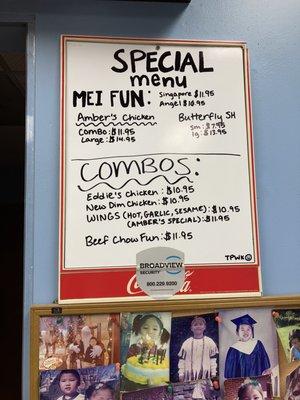 SPECIAL
menu
MEI FUN: Singapore $11.95
Angel $10.95
Amber's Chicken
Combo: $11.95
Large: $14.95
Butterfly SH
sm: $7.95
lg: $13.95
COMBOS:
Eddie's Chicken: $10.95
New Dim Chicken: $10.95
WINGS (HOT, GARLIC, SESAME): $10.95
(AMBER'S SPECIAL): $11.95
Beef Chow Fun: $11.95
TPWK☺
BROADVIEW
SECURITY
800.229.9200